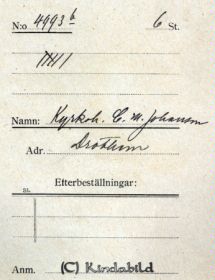 N:o 4993 b 6 St.
Namn: Kyrkoh. C. M. Johansson
Adr.
Efterbeställningar:
St.
Anm.
(C) Kindabild